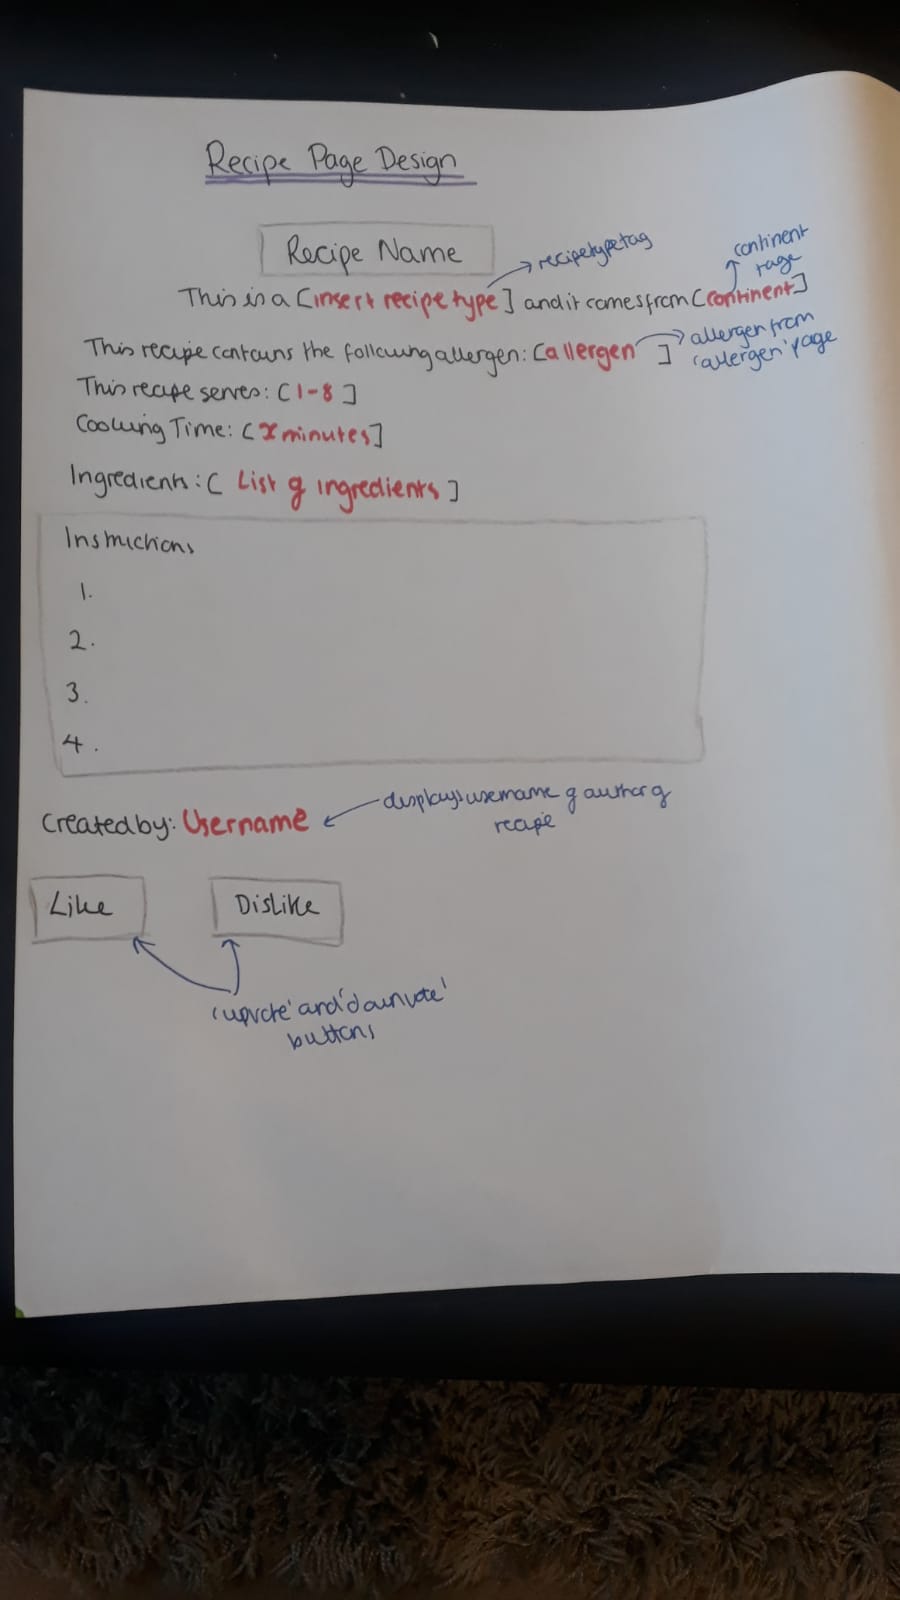 Recipe Page Design
Recipe Name
recipetype tag
continent
page
This is a [insert recipe type] and it comes from [continent]
This recipe contains the following allergen: [allergen ]
allergen from
'allergen' page
This recipe serves: [1-8]
Cooking Time: [x minutes]
Ingredients: [ List of ingredients ]
Instructions
1.
2.
3.
4.
Created by: Username
displays username of author of
recipe
Like
Dislike
'upvote' and 'downvote'
buttons